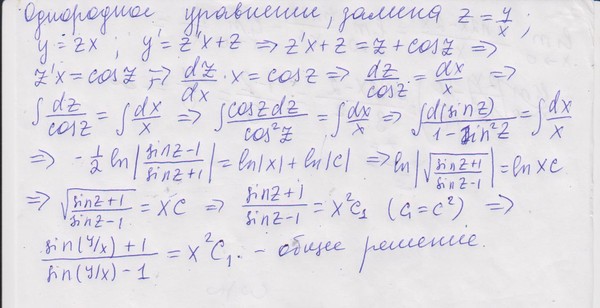 Однородное уравнение, замена z = y/x ;
y = zx ; y' = z'x + z ⇒ z'x + z = z + cosz ⇒
z'x = cosz ⇒ dz/dx · x = cosz ⇒ dz/cosz = dx/x ⇒
∫ dz/cosz = ∫ dx/x ⇒ ∫ coszdz/cos²z = ∫ dx/x ⇒ ∫ d(sinz)/1 - sin²z = ∫ dx/x
⇒ - 1/2 ln | sinz-1/sinz+1 | = ln|x| + ln|c| ⇒ ln | √ sinz+1/sinz-1 | = ln xc
⇒ √ sinz+1/sinz-1 = xc ⇒ sinz+1/sinz-1 = x²c₁ (c₁ = c²) ⇒
sin(y/x) + 1/sin(y/x) - 1 = x²c₁. - общее решение.